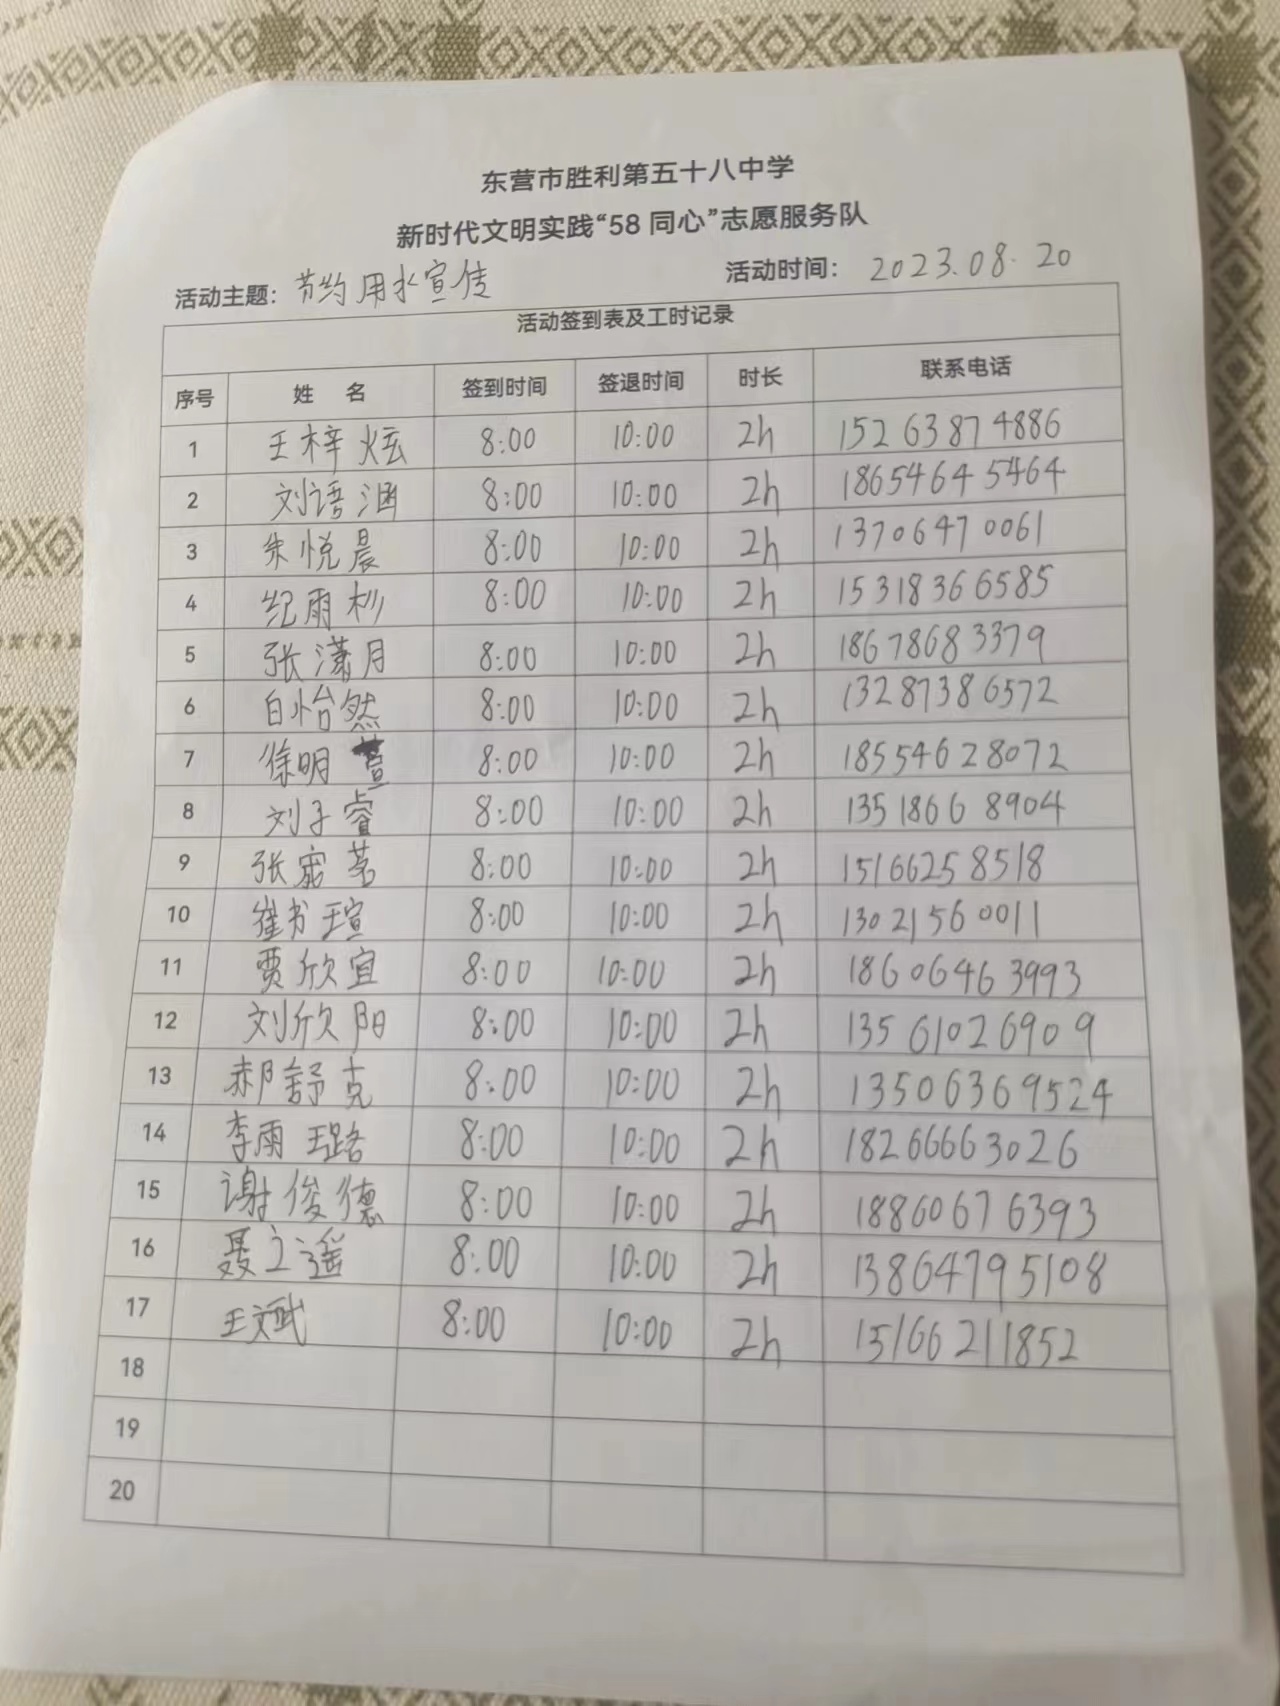 东营市胜利第五十八中学
新时代文明实践“58 同心”志愿服务队
活动主题：节约用水宣传 活动时间：2023.08.20
活动签到表及工时记录
序号 姓 名 签到时间 签退时间 时长 联系电话
1 王梓炫 8:00 10:00 2h 15263874886
2 刘语涵 8:00 10:00 2h 18654645464
3 朱悦晨 8:00 10:00 2h 13706470061
4 纪雨杉 8:00 10:00 2h 15318366585
5 张潇月 8:00 10:00 2h 18678683379
6 白怡然 8:00 10:00 2h 13287386572
7 徐明萱 8:00 10:00 2h 18554628072
8 刘子睿 8:00 10:00 2h 13518668904
9 张宸茗 8:00 10:00 2h 15166258518
10 崔书瑄 8:00 10:00 2h 13021560011
11 贾欣宜 8:00 10:00 2h 18606463993
12 刘欣阳 8:00 10:00 2h 13561026909
13 郝舒克 8:00 10:00 2h 13506369524
14 李雨璐 8:00 10:00 2h 18266663026
15 谢俊德 8:00 10:00 2h 18860676393
16 聂立遥 8:00 10:00 2h 13864795108
17 王文武 8:00 10:00 2h 15166211852
18
19
20